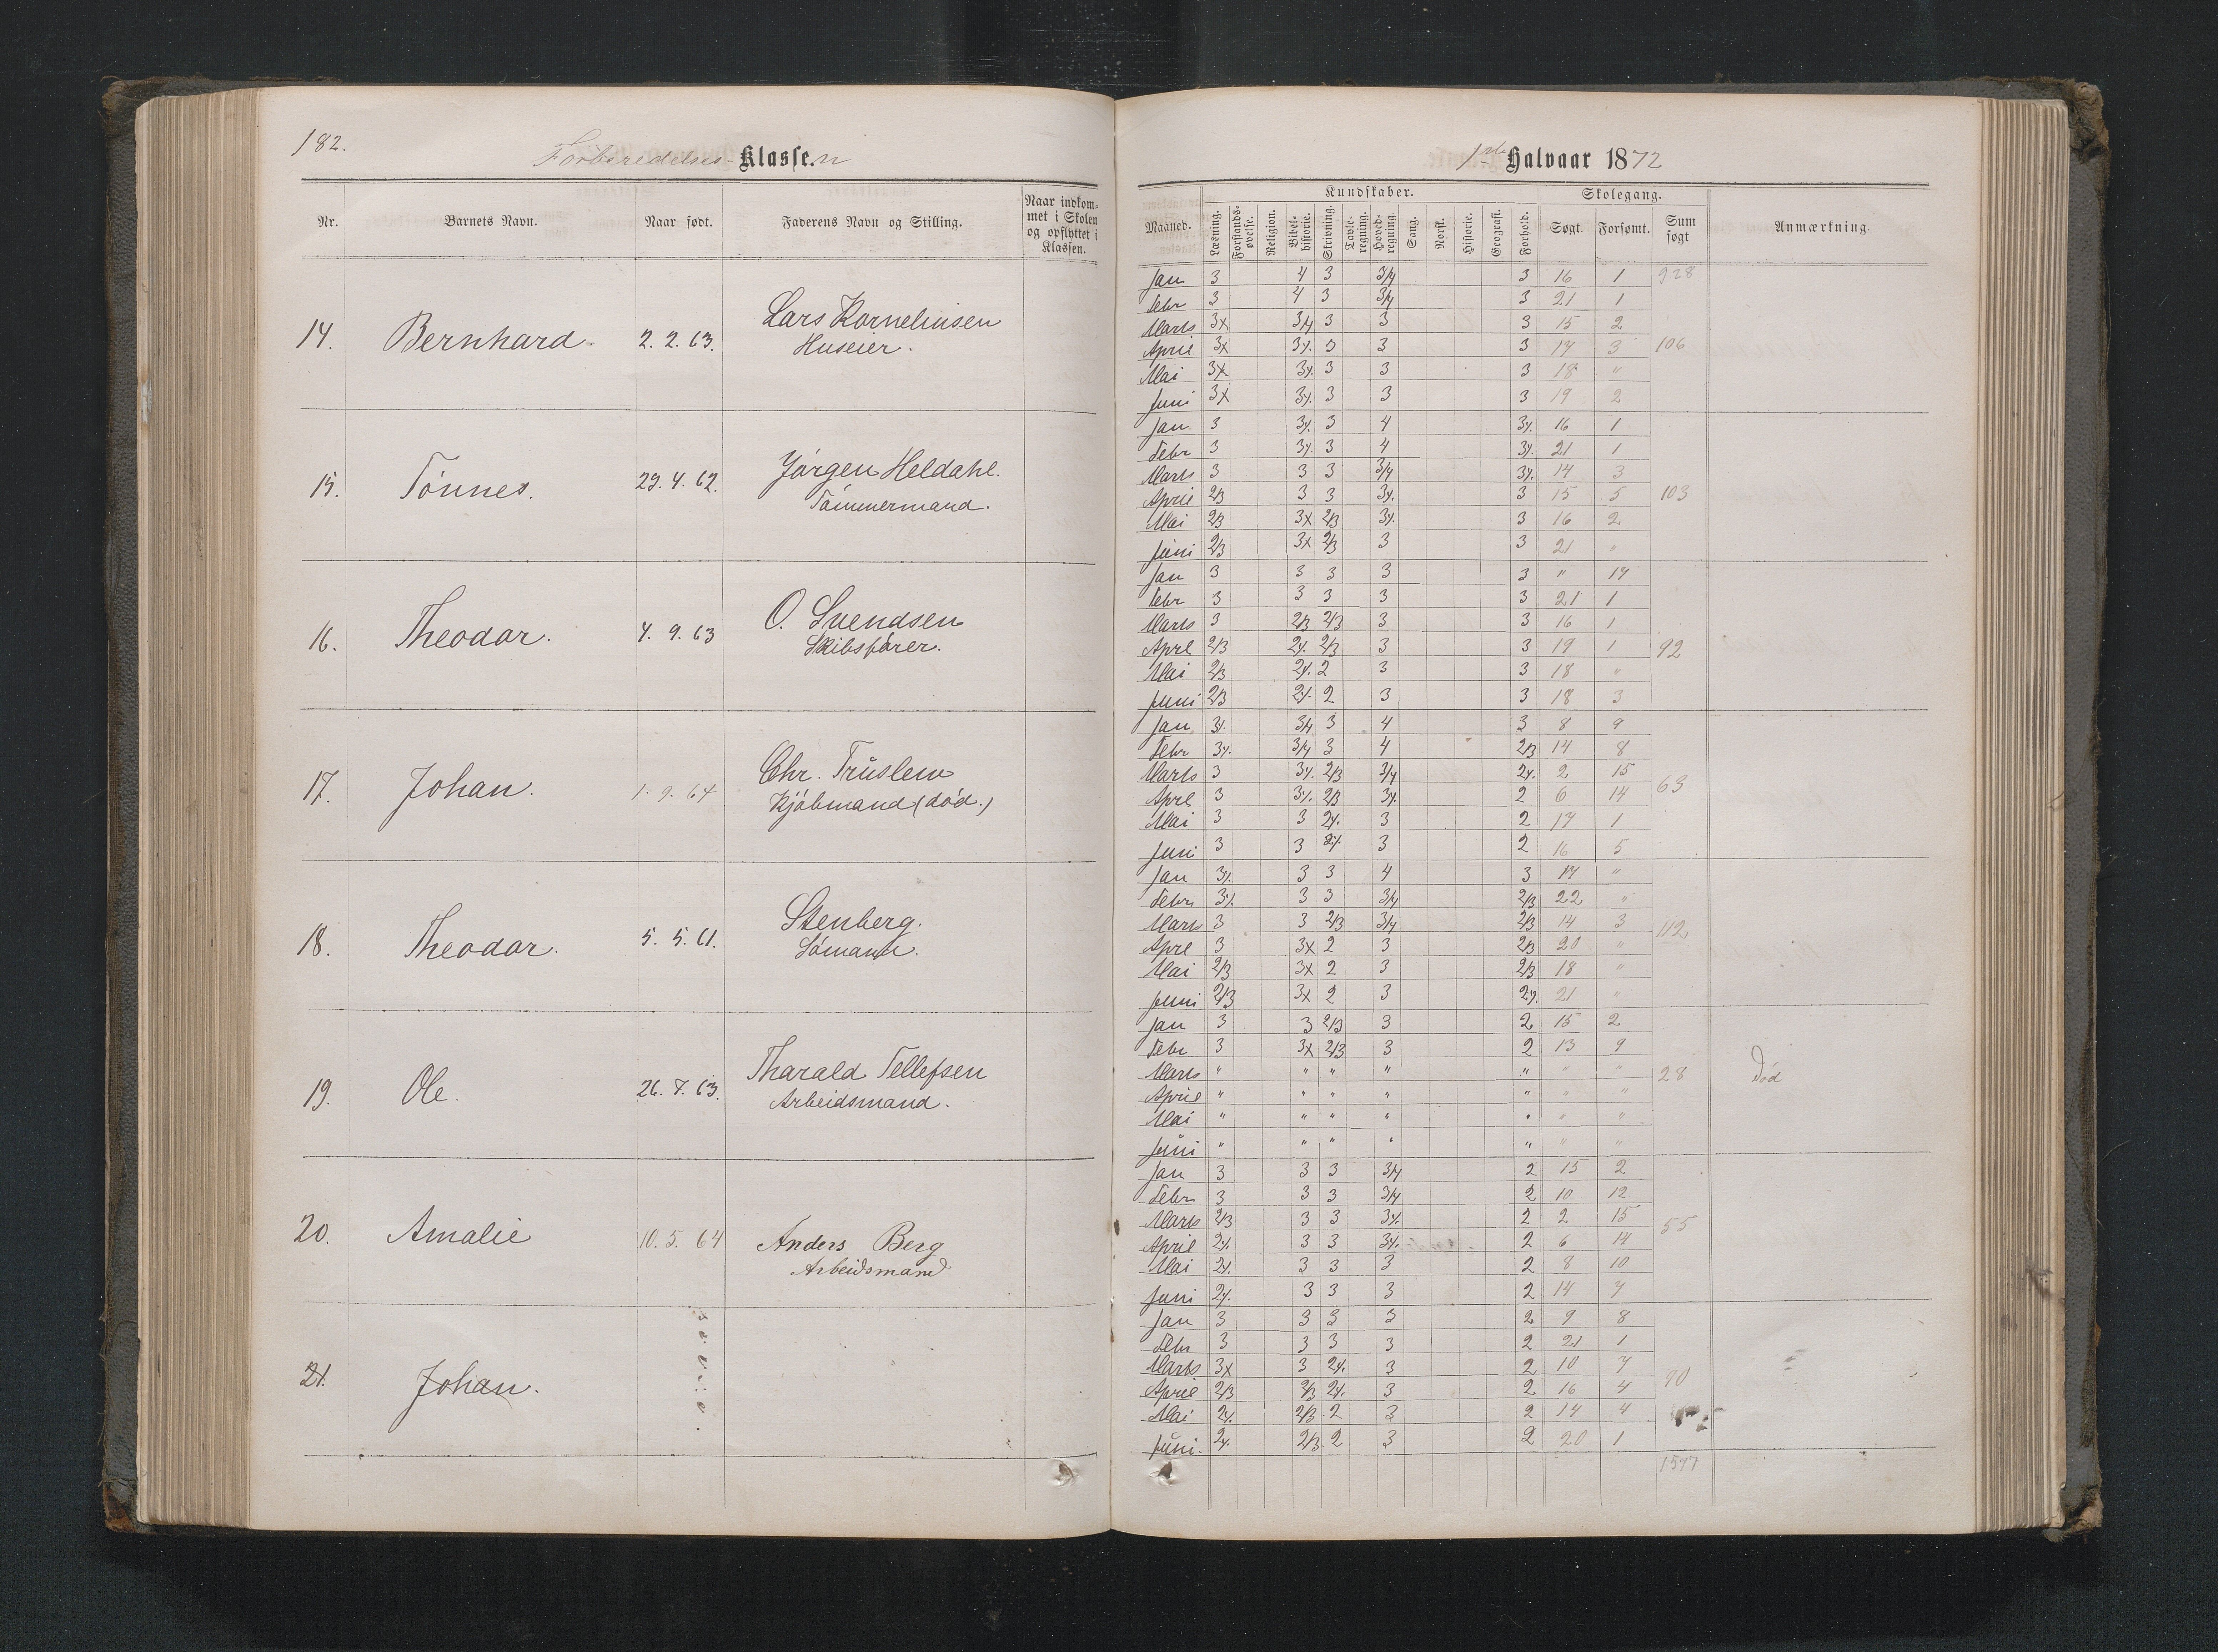 182.
Forberedelses Klassen
Nr. Barnets Navn. Naar født. Faderens Navn og Stilling. Naar indkommet i Skolen og opflyttet i Klassen.
14. Bernhard. 2. 2. 63. Lars Korneliusen
Huseier.
15. Tönnes. 29. 4. 62. Jörgen Heldahl.
Tömmermand.
16. Theodor. 4. 9. 63 O. Svendsen
Skibsförer.
17. Johan. 1. 9. 64 Chr. Truslew
Kjöbmand (död.)
18. Theodor. 5. 5. 61. Stenberg.
Sömand.
19. Ole. 26. 7. 63. Tharald Tellefsen
Arbeidsmand.
20. Amalie 10. 5. 64 Anders Berg
Arbeidsmand
21. Johan.
1ste Halvaar 1872
Kundskaber. Skolegang.
Maaned. Læsning. Forstands-øvelse. Religion. Bibel-historie. Skrivning. Tavle-regning. Hoved-regning. Sang. Norsk. Historie. Geografi. Forhold. Søgt. Forsømt. Sum søgt Anmærkning
Jan 3 4 3 3/4 3 16 1 928
Febr 3 4 3 3/4 3 21 1
Marts 3x 3/4 3 3 3 15 2
April 3x 3 3 3 17 3 106
Mai 3x 3 3 3 18 "
Juni 3x 3 3 3 19 2
Jan 3 3 4 16 1
Febr 3 3 4 21 1
Marts 3 3 3 3/4 14 3
April 2/3 3 3 3 15 5 103
Mai 2/3 3x 2/3 3 16 2
Juni 2/3 3x 2/3 3 3 21 "
Jan 3 3 3 3 3 " 17
Febr 3 3 3 3 3 21 1
Marts 3 2/3 2/3 3 3 16 1
Aprl 2/3 2/3 3 3 19 1 92
Mai 2/3 2 3 3 18 "
Juni 2/3 2 3 3 18 3
Jan 3/4 3 4 3 8 9
Febr 3/4 3 4 2/3 14 8
Marts 3 2/3 3/4 2 15
Aprl 3 2/3 2 6 14 63
Mai 3 3 3 2 17 1
Juni 3 3 3 2 16 5
Jan 3 3 4 3 17 "
Febr 3 3 3/4 2/3 22 "
Marts 3 3 2/3 3/4 2/3 14 3
Aprl 3 3x 2 3 2/3 20 " 112
Mai 2/3 3x 2 3 2/3 18 "
Juni 2/3 3x 2 3 21 "
Jan 3 3 2/3 3 2 15 2
Febr 3 3x 2/3 3 2 13 9
Marts " " " " " " " 28 Död
April " " " " " " "
Mai " " " " " " "
Juni " " " " " " "
Jan 3 3 3 3/4 2 15 2
Febr 3 3 3 3/4 2 10 12
Marts 2/3 3 3 2 2 15
April 3 3 2 6 14 55
Mai 3 3 3 2 8 10
Juni 3 3 3 2 14 7
Jan 3 3 3 3 2 9 8
Febr 3 3 3 3 2 21 1
Marts 3x 3 3 2 10 7
April 2/3 2/3 3 2 16 4 90
Mai 2/3 2 3 2 14 4
Juni 2/3 2 3 2 20 1
1577